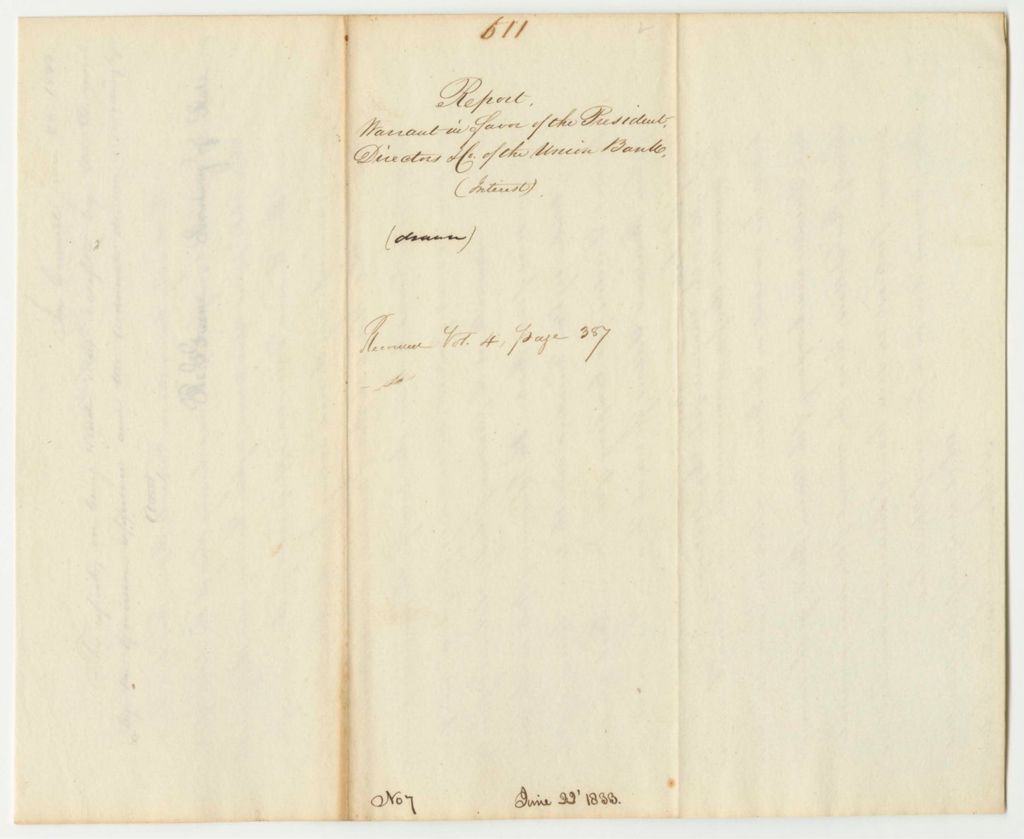 611
Report.
Warrant in favor of the President,
Directors &Co. of the Union Bank,
(Interest).
(drawn)
Vol. 4, page 387
No 7
June 22' 1833.